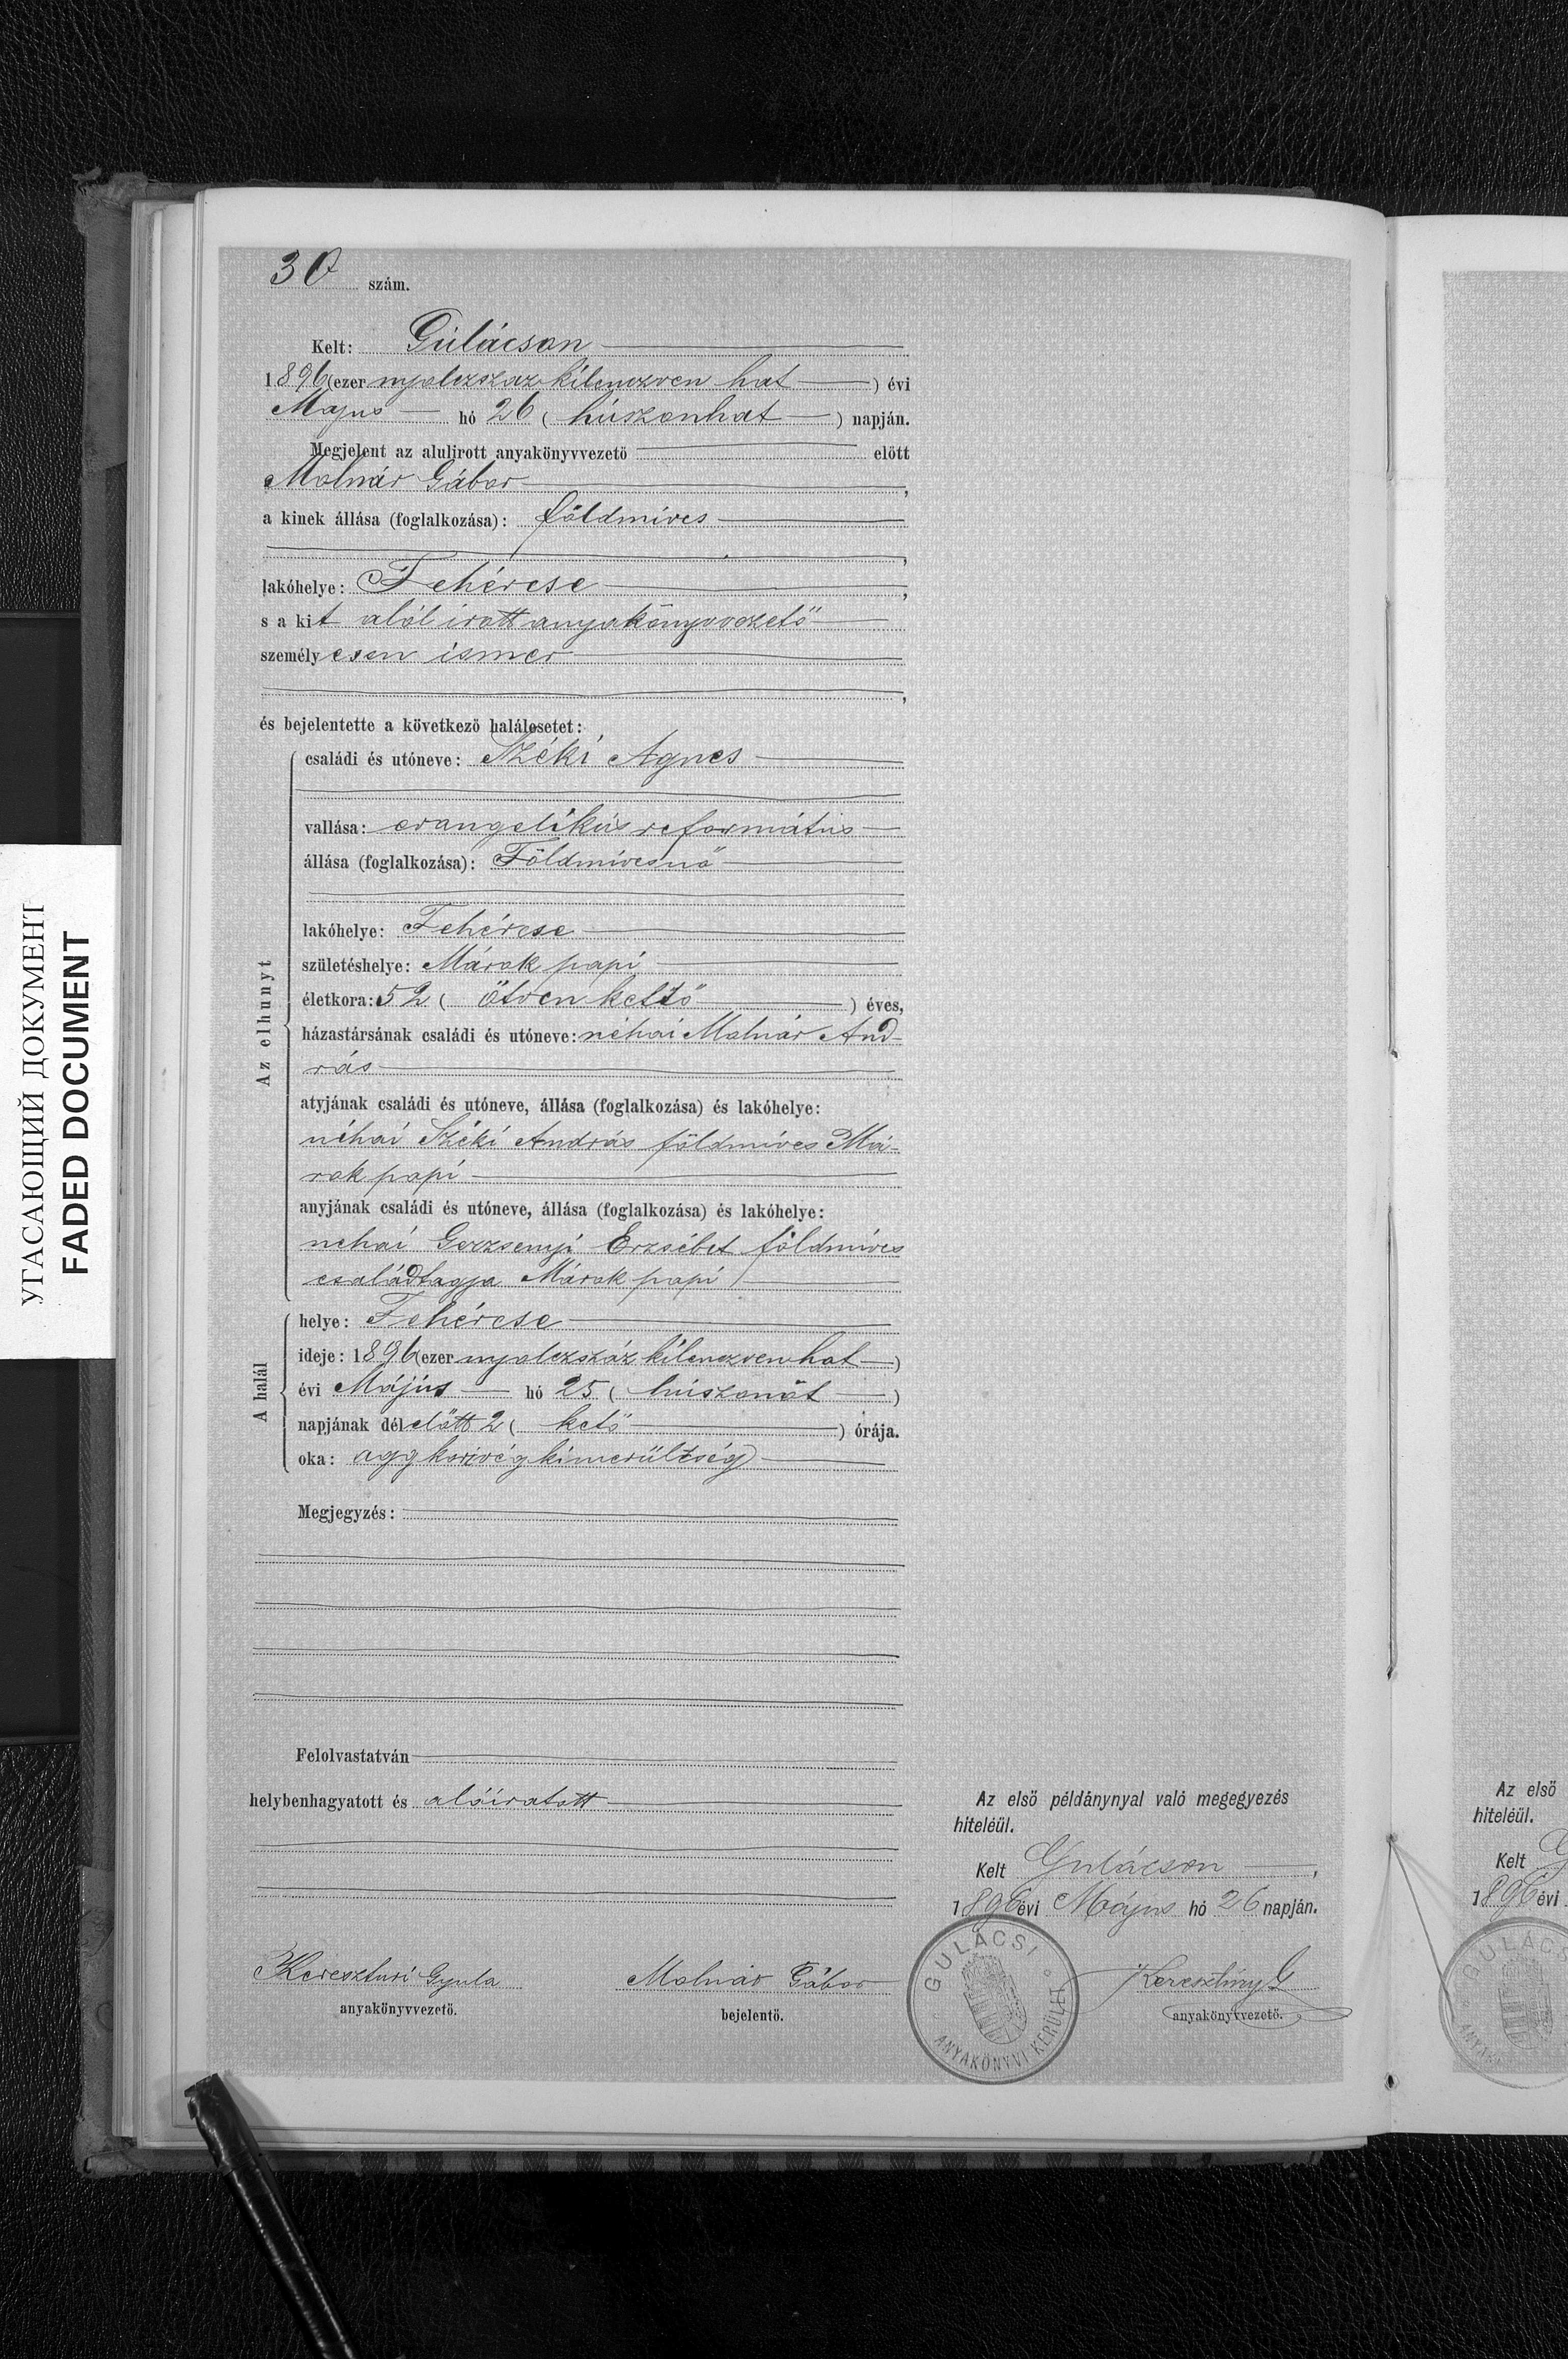 30 szám.
Kelt: Gulácson
1896 (ezer nyolczszaz kilenczven hat) évi
Majus hó 26 (húszonhat) napján.
Megjelent az alulirott anyakönyvvezetö elött
Molnár Gábor,
a kinek állása (foglalkozása): földmives
,
lakóhelye: Fehércse,
s a kit alól irott anyakönyvvezető
személyesen ismer
,
és bejelentette a következö halálesetet:
Az elhunyt
családi és utóneve: Széki Agnes
vallása: evangelikús reformátús
állása (foglalkozása): Földmivesnö
lakóhelye: Fehércse
születéshelye: Márok papi
életkora: 52 (ötven kettő) éves,
házastársának családi és utóneve: néhai Molnár And-
rás
atyjának családi és utóneve, állása (foglalkozása) és lakóhelye:
néhai Széki András földmives Má-
rok papi
anyjának családi és utóneve, állása (foglalkozása) és lakóhelye:
nehai Erzsébet földmives
családtagja Márok papi
A halál
helye: Fehércse
ideje: 1896 (ezer nyolczszáz kilenczvenhat)
évi Május hó 25 (húszonöt)
napjának délelőtt 2 (kető) órája.
oka: aggkori végkimerültség
Megjegyzés:
Felolvastatván
helybenhagyatott és alóiratott
Kereszturi Gyula
anyakönyvvezetö.
Molnár Gábor
bejelentö.
Az elsö példánynyal való megegyezés
hiteléül.
Kelt Gulácson,
1896 évi Május hó 26 napján.
GULÁCSI ANYAKÖNYVI KERÜLET
anyakönyvvezetö.
УГАСАЮЩИЙ ДОКУМЕНТ
FADED DOCUMENT
Az elsö
hiteléül.
Kelt
1896 évi